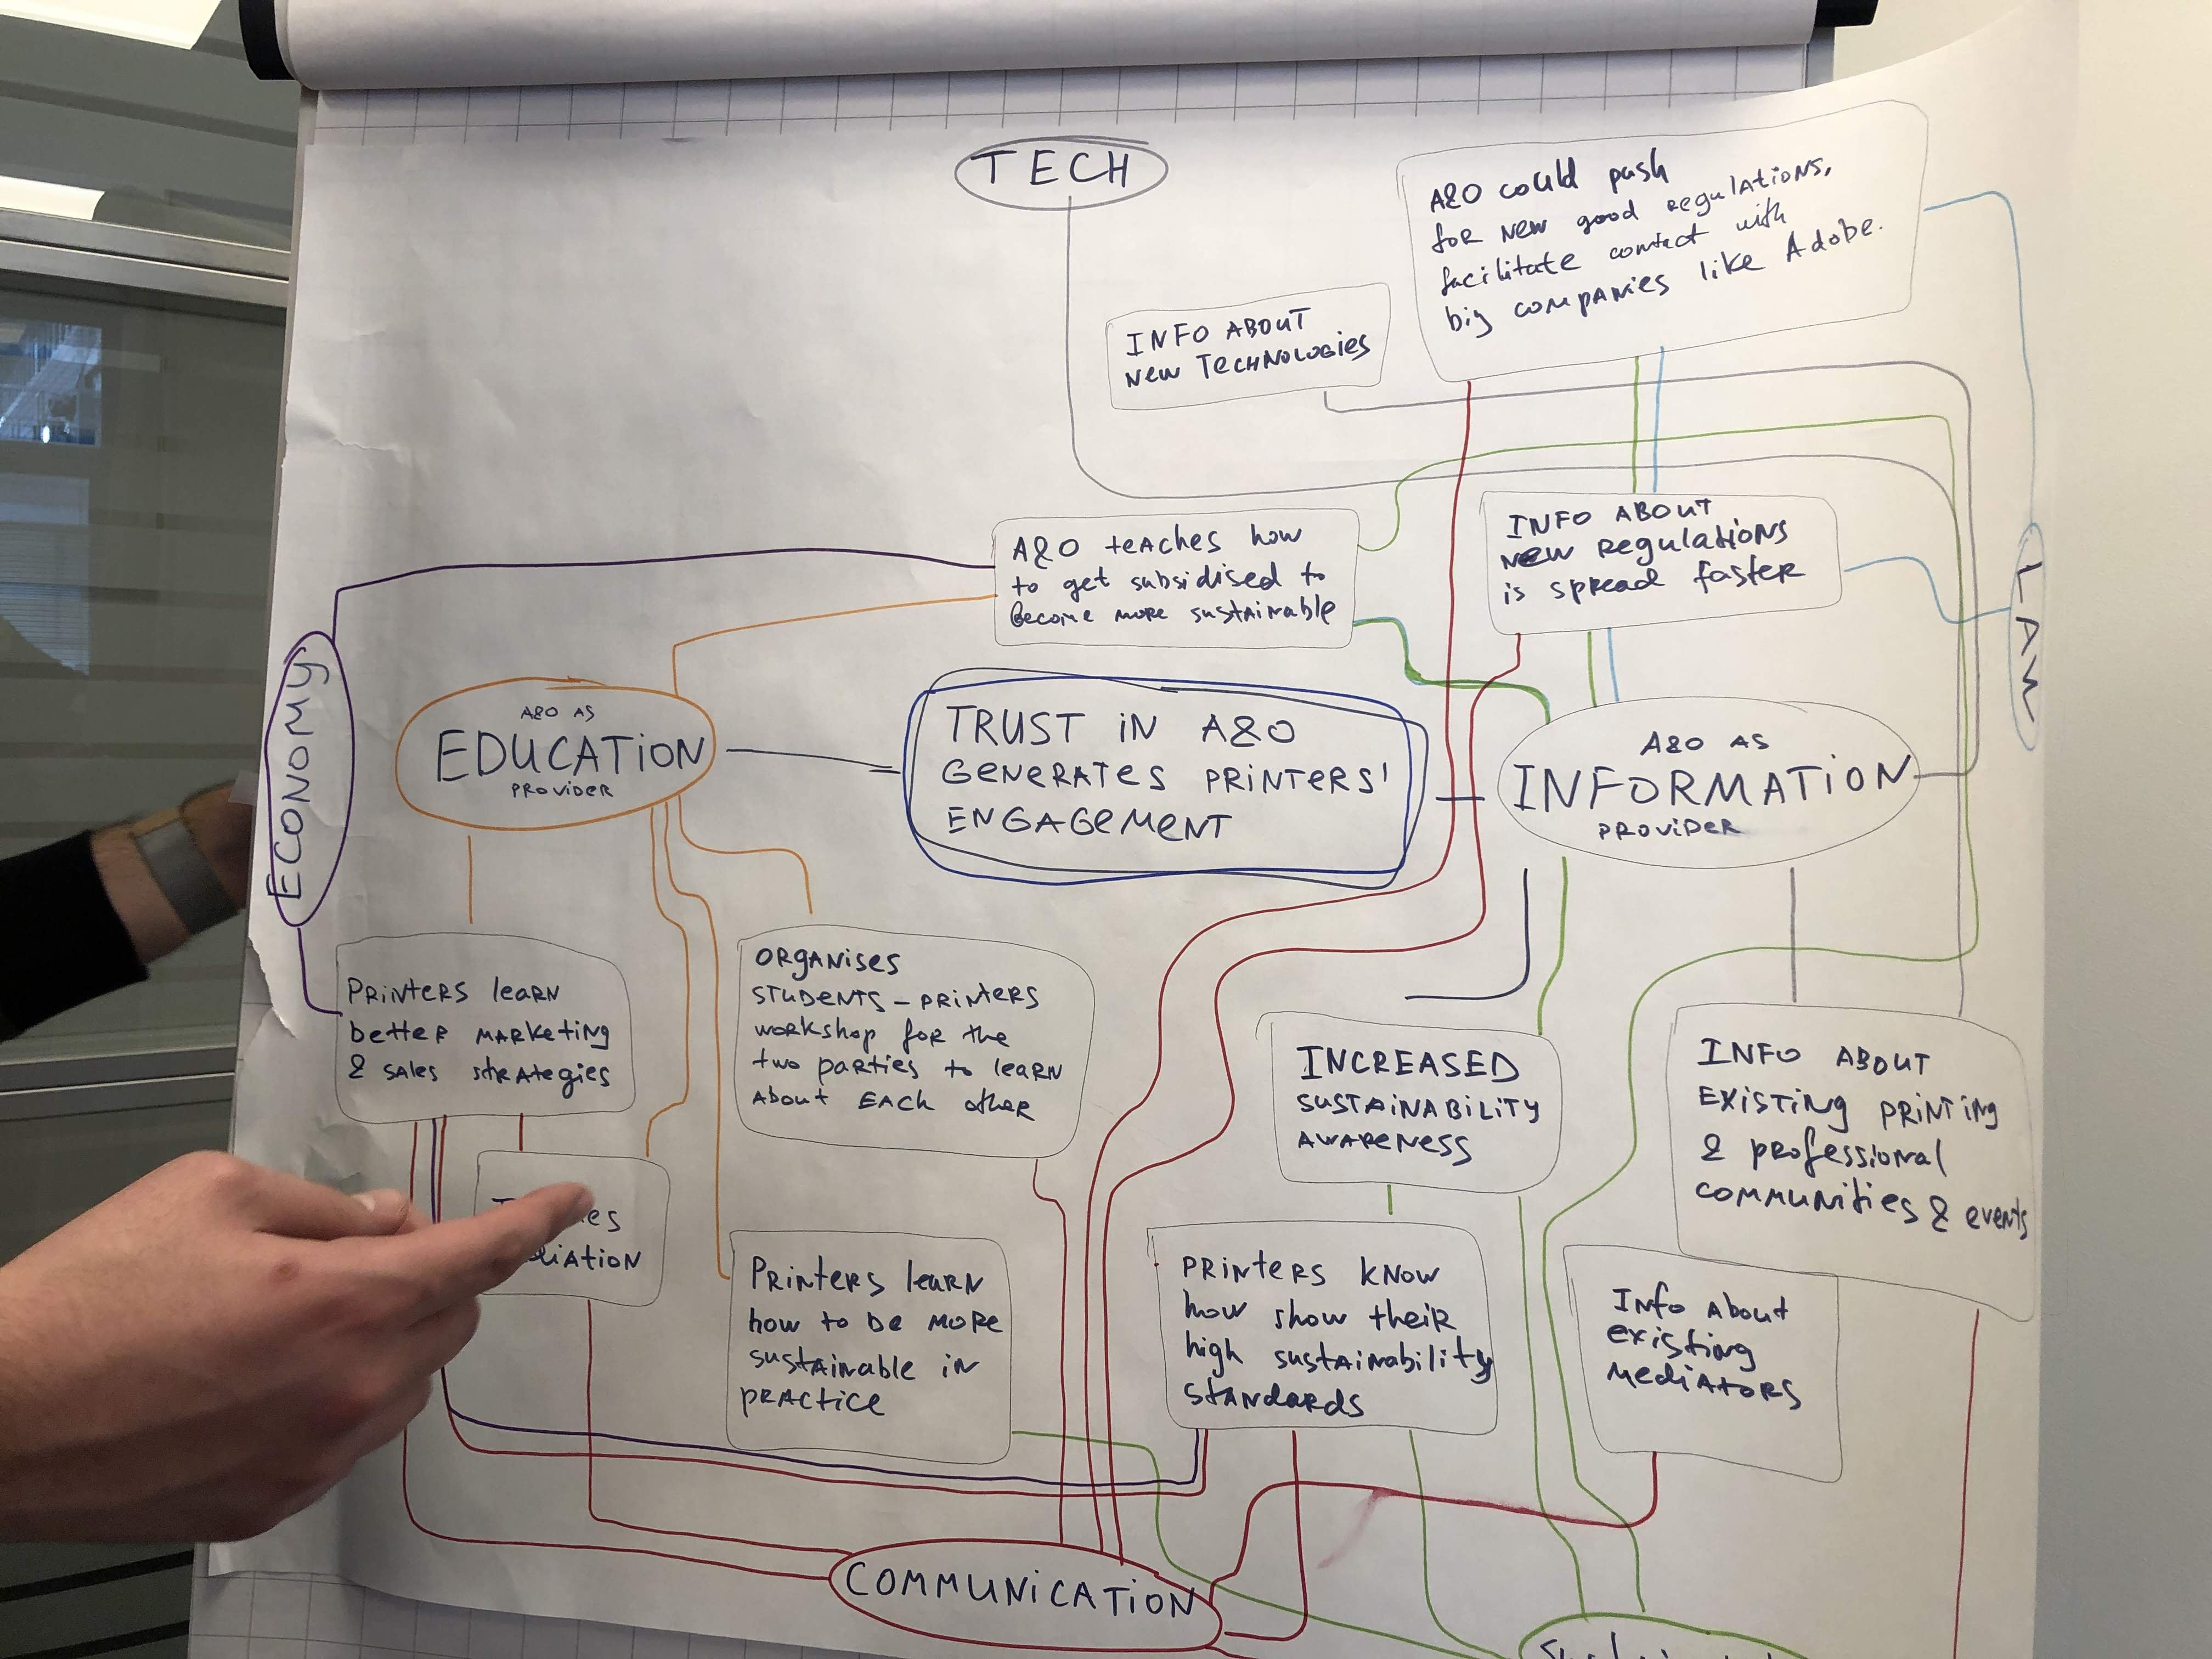 TECH
A&O could push
for new good regulations,
facilitate contact with
big companies like Adobe.
INFO ABOUT
NEW TECHNOLOGIES
A&O teaches how
to get subsidised to
become more sustainable
INFO ABOUT
NEW Regulations
is spread faster
LAW
ECONOMY
A&O AS
EDUCATION
PROVIDER
TRUST IN A&O
GENERATES PRINTERS'
ENGAGEMENT
A&O AS
INFORMATION
PROVIDER
PRINTERS learn
better marketing
& sales strategies
ORGANISES
STUDENTS - PRINTERS
workshop for the
two parties to learn
about EACH other
INCREASED
SUSTAINABILITY
AWARENESS
INFO ABOUT
EXISTING PRINTING
& professional
communities & events
Printers learn
how to be more
sustainable in
practice
PRINTERS KNOW
how show their
high sustainability
standards
Info About
existing
mediators
COMMUNICATION